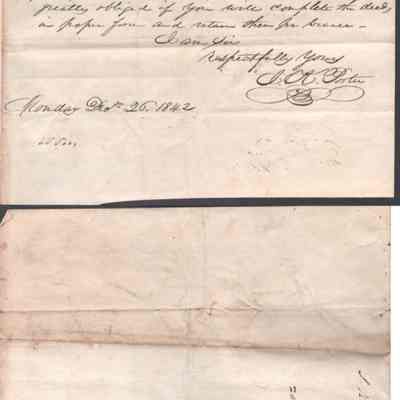 greatly obliged if you will complete the deeds
in proper form and return them per bearer –
I am Sir
respectfully Yours
J. K. Porter
Monday Decr 26. 1842